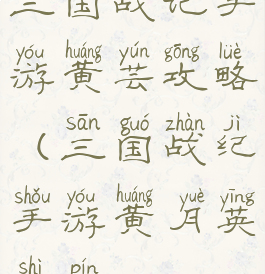 三国战纪手
yóu huáng yún gōng lüè
游黄芸攻略
sān guó zhàn jì
(三国战纪
shǒu yóu huáng yuè yīng
手游黄月英
shì pín